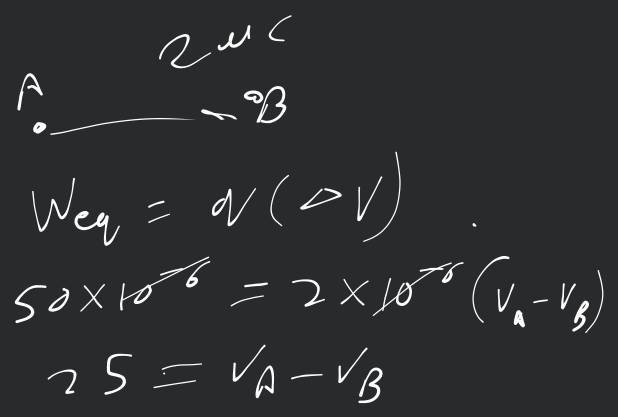 2 μC
A B
Weq = q(ΔV)
50×10⁻⁶ = 2×10⁻⁶ (V_A - V_B)
25 = V_A - V_B